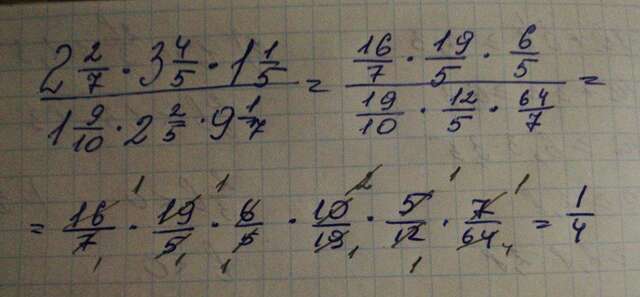 2 2/7 · 3 4/5 · 1 1/5 / 1 9/10 · 2 2/5 · 9 1/7 = 16/7 · 19/5 · 6/5 / 19/10 · 12/5 · 64/7 =
= 16/7 · 19/5 · 6/5 · 10/19 · 5/12 · 7/64 = 1/4